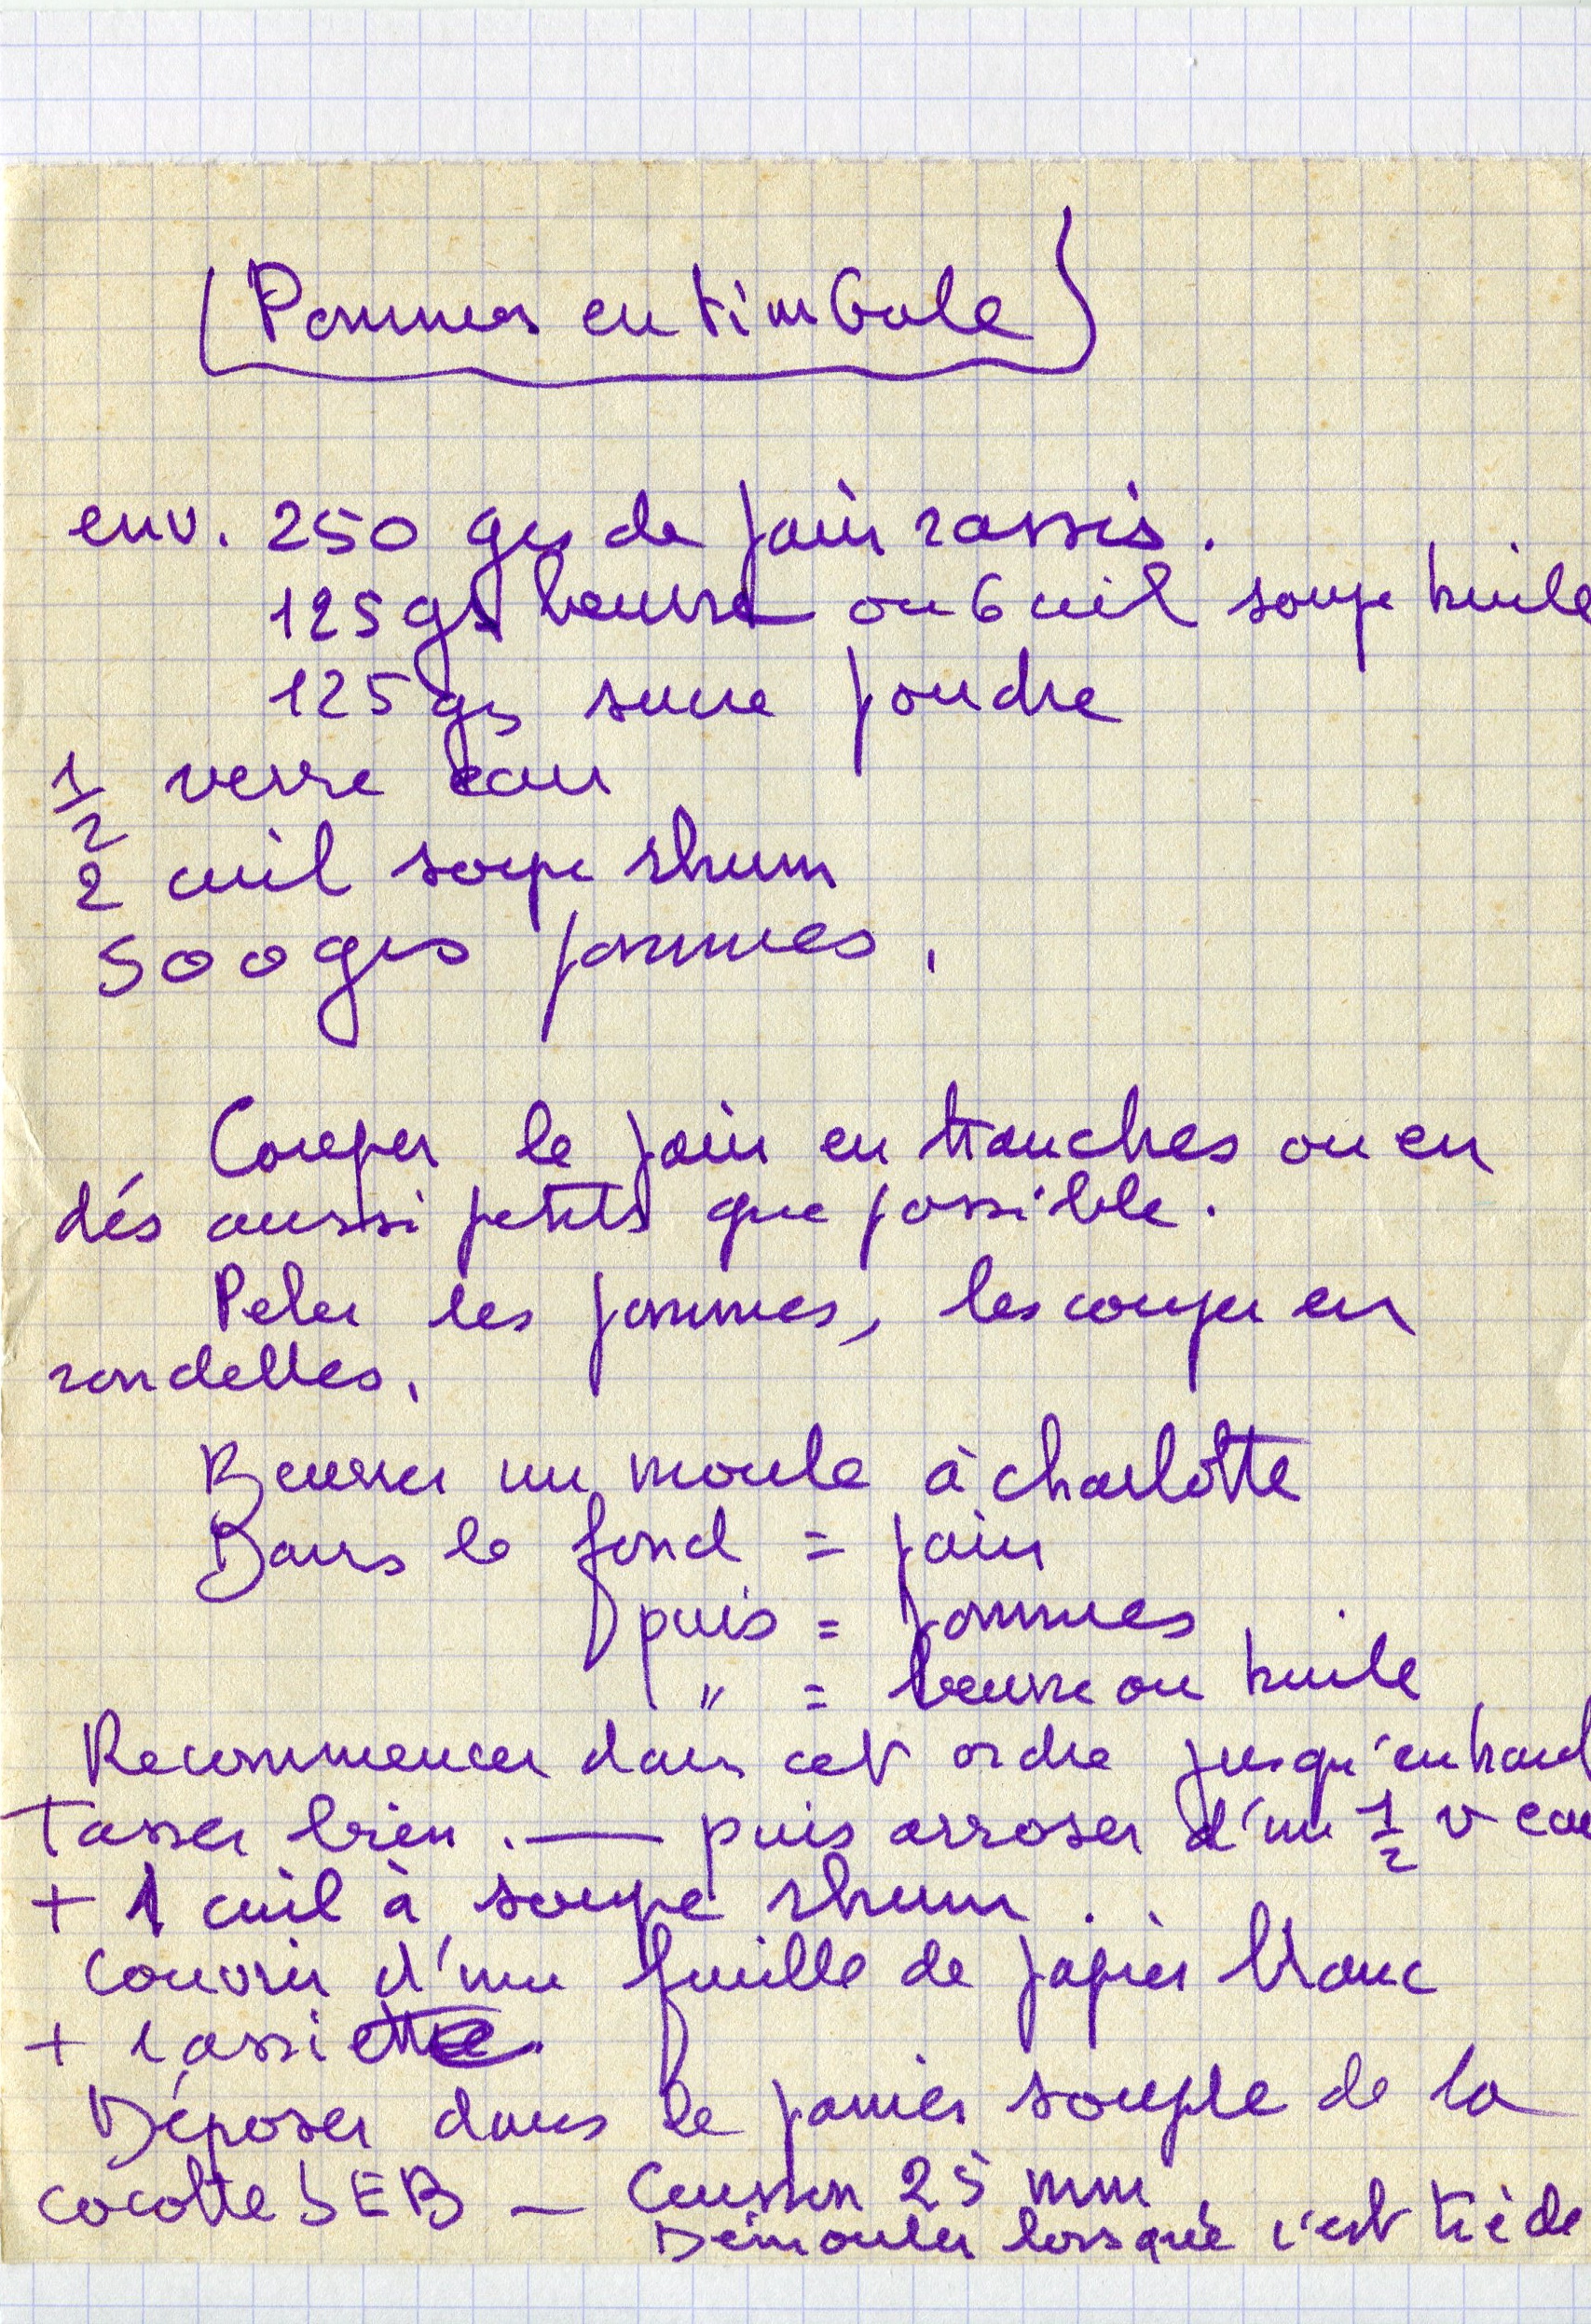 Pommes en timbale
env. 250 grs de pain rassis.
125 grs beurre ou 6 cuil soupe huile
125 grs sucre poudre
1/2 verre eau
2 cuil soupe rhum
500 grs pommes.
Couper le pain en tranches ou en
dés aussi petits que possible.
Peler les pommes, les couper en
rondelles.
Beurrer un moule à charlotte
Dans le fond = pain
puis = pommes
" = beurre ou huile
Recommencer dans cet ordre jusqu'en haut
Tasser bien. — puis arroser d'un 1/2 v eau
+ 1 cuil à soupe rhum.
Couvrir d'une feuille de papier blanc
+ 1 assiette.
Déposer dans le panier souple de la
cocotte SEB — Cuisson 25 mm
Démouler lorsque c'est tiède